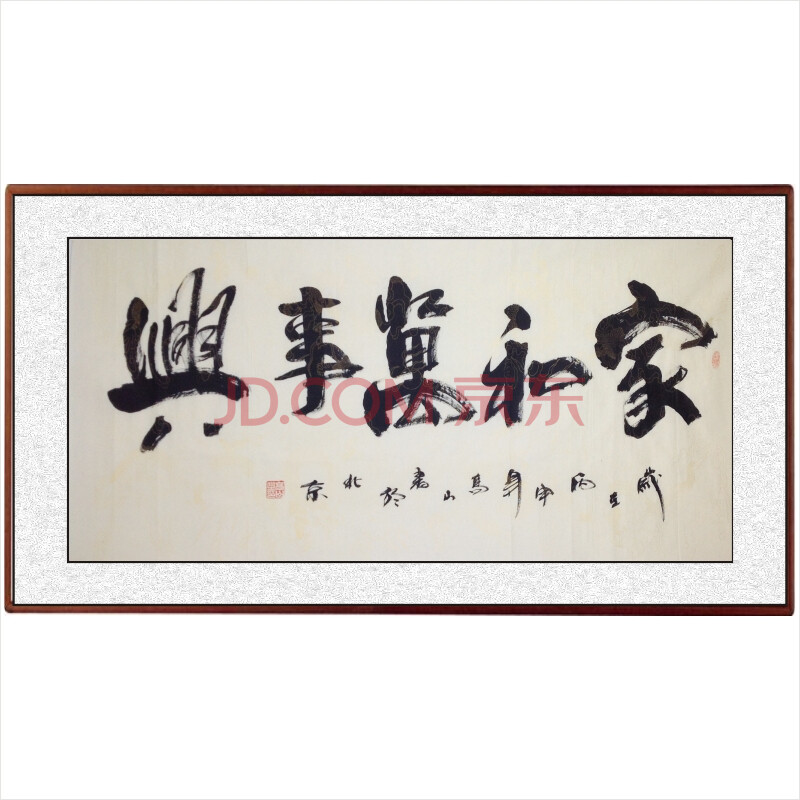 家和萬事興
歲在丙申夏馬山書於北京
JD.COM 京东